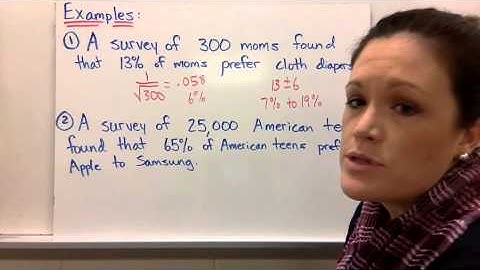 Examples:
① A survey of 300 moms found
that 13% of moms prefer cloth diapers
1/√300 = .058
6%
13 ± 6
7% to 19%
② A survey of 25,000 American
found that 65% of American teens
Apple to Samsung.